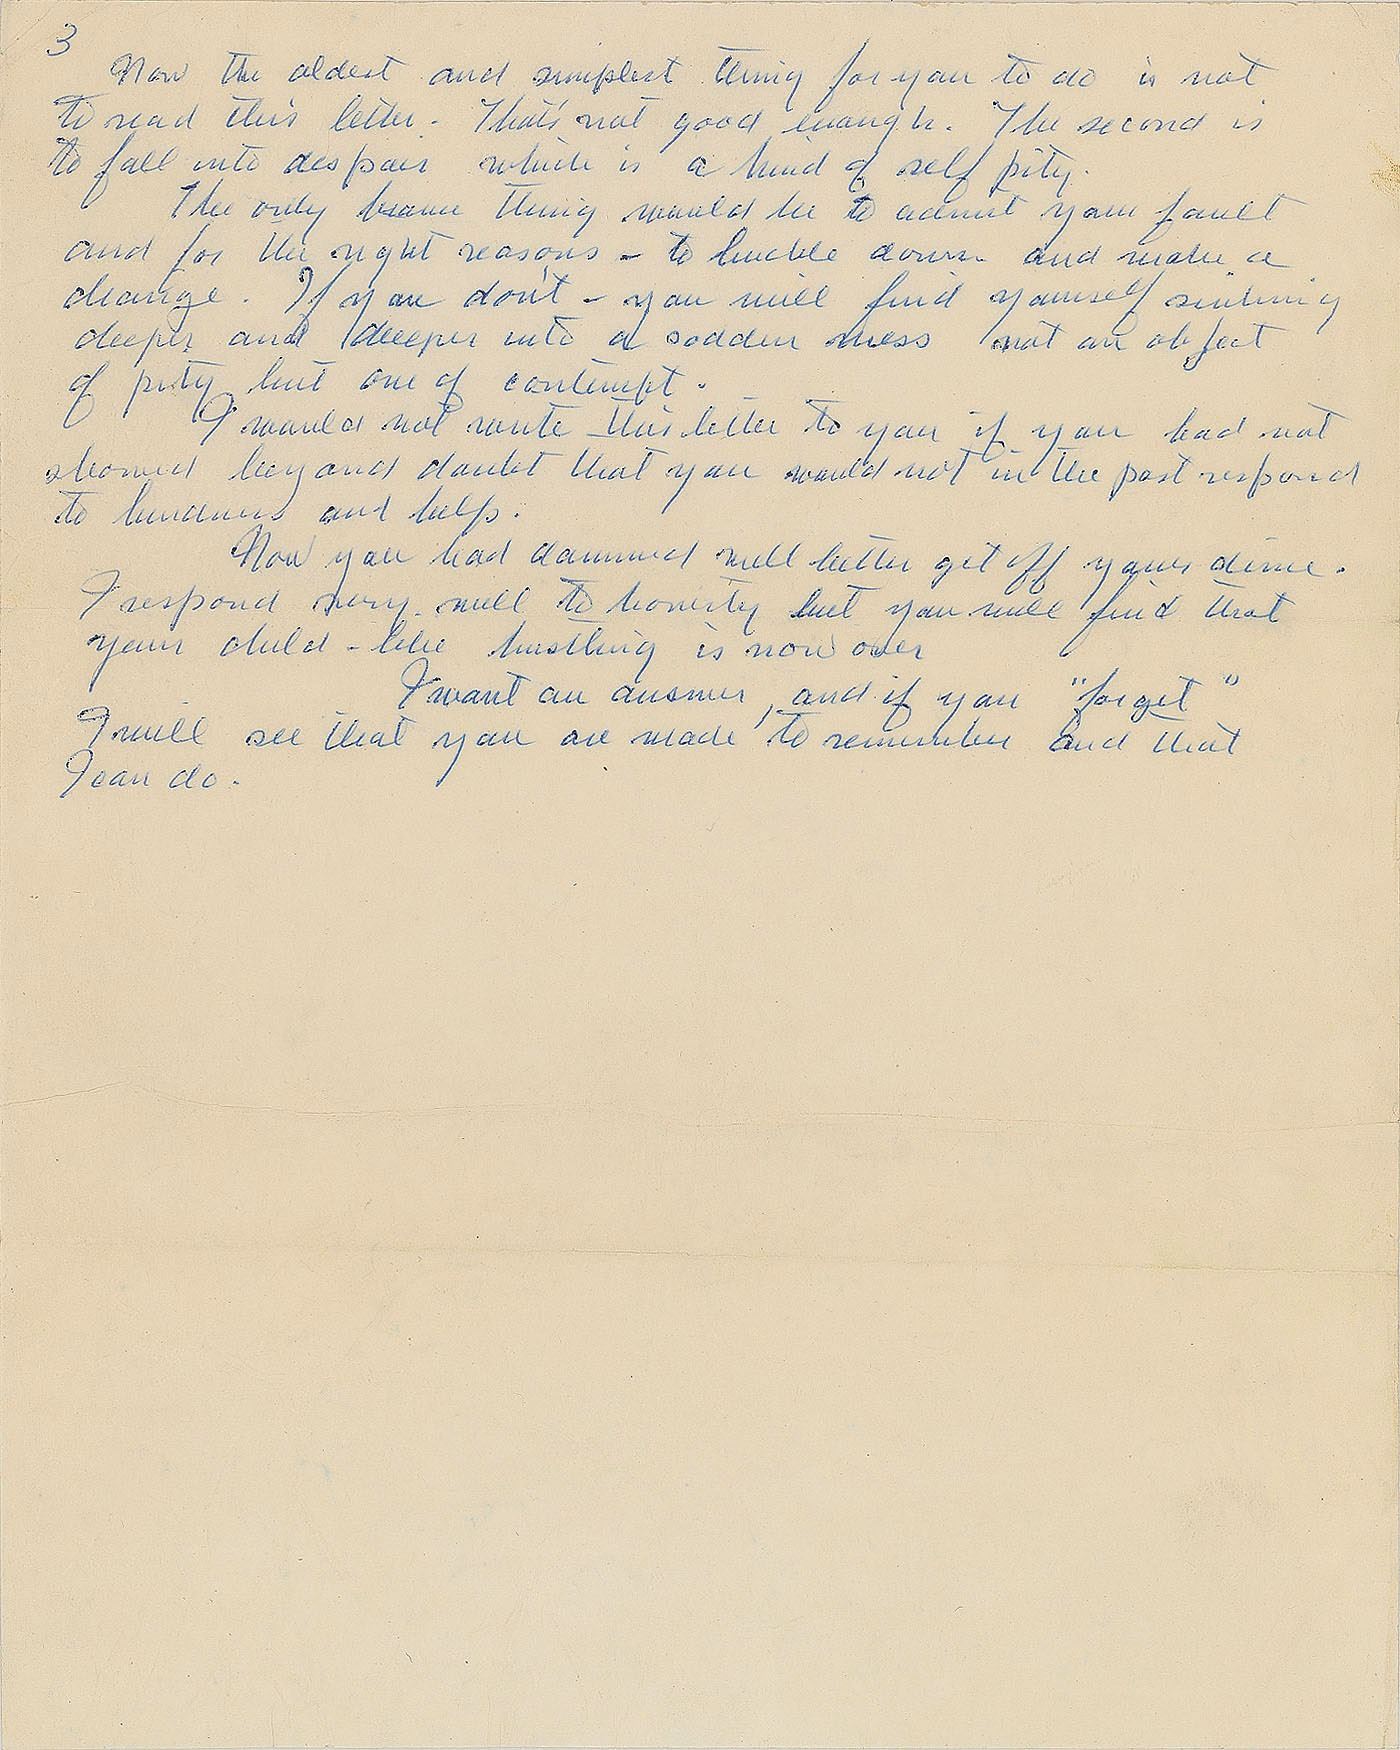 3
Now the oldest and simplest thing for you to do is not
to read this letter. That's not good enough. The second is
to fall into despair which is a kind of self pity.
The only brave thing would be to admit your fault
and for the right reasons - to buckle down and make a
change. If you don't - you will find yourself sinking
deeper and deeper into a sodden mess not an object
of pity but one of contempt.
I would not write this letter to you if you had not
showed beyond doubt that you would not in the past respond
to kindness and help.
Now you had damned well better get off your dime.
I respond very well to honesty but you will find that
your child-like hustling is now over
I want an answer, and if you "forget"
I will see that you are made to remember and that
I can do.